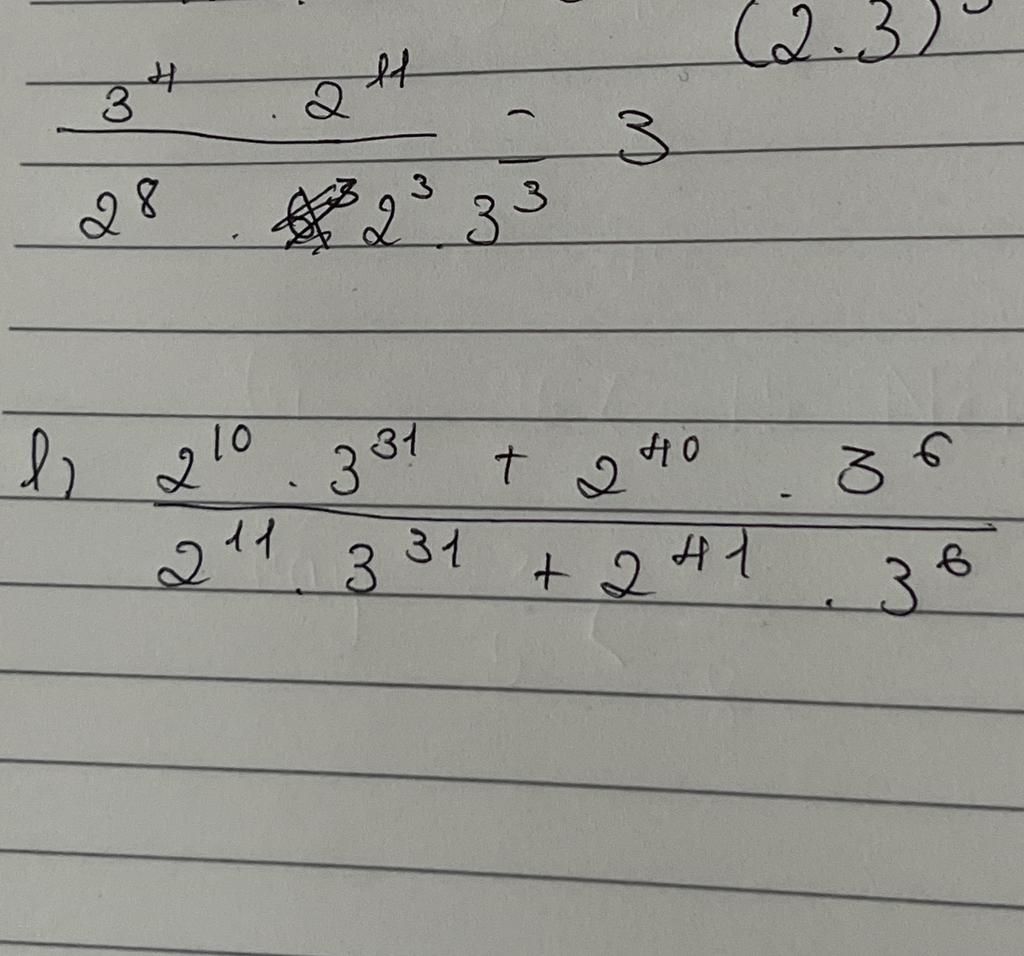 (2.3)
3^4 . 2^11 = 3
2^8 . 2^3 . 3^3
l) 2^10 . 3^31 + 2^40 . 3^6
2^11 . 3^31 + 2^41 . 3^6